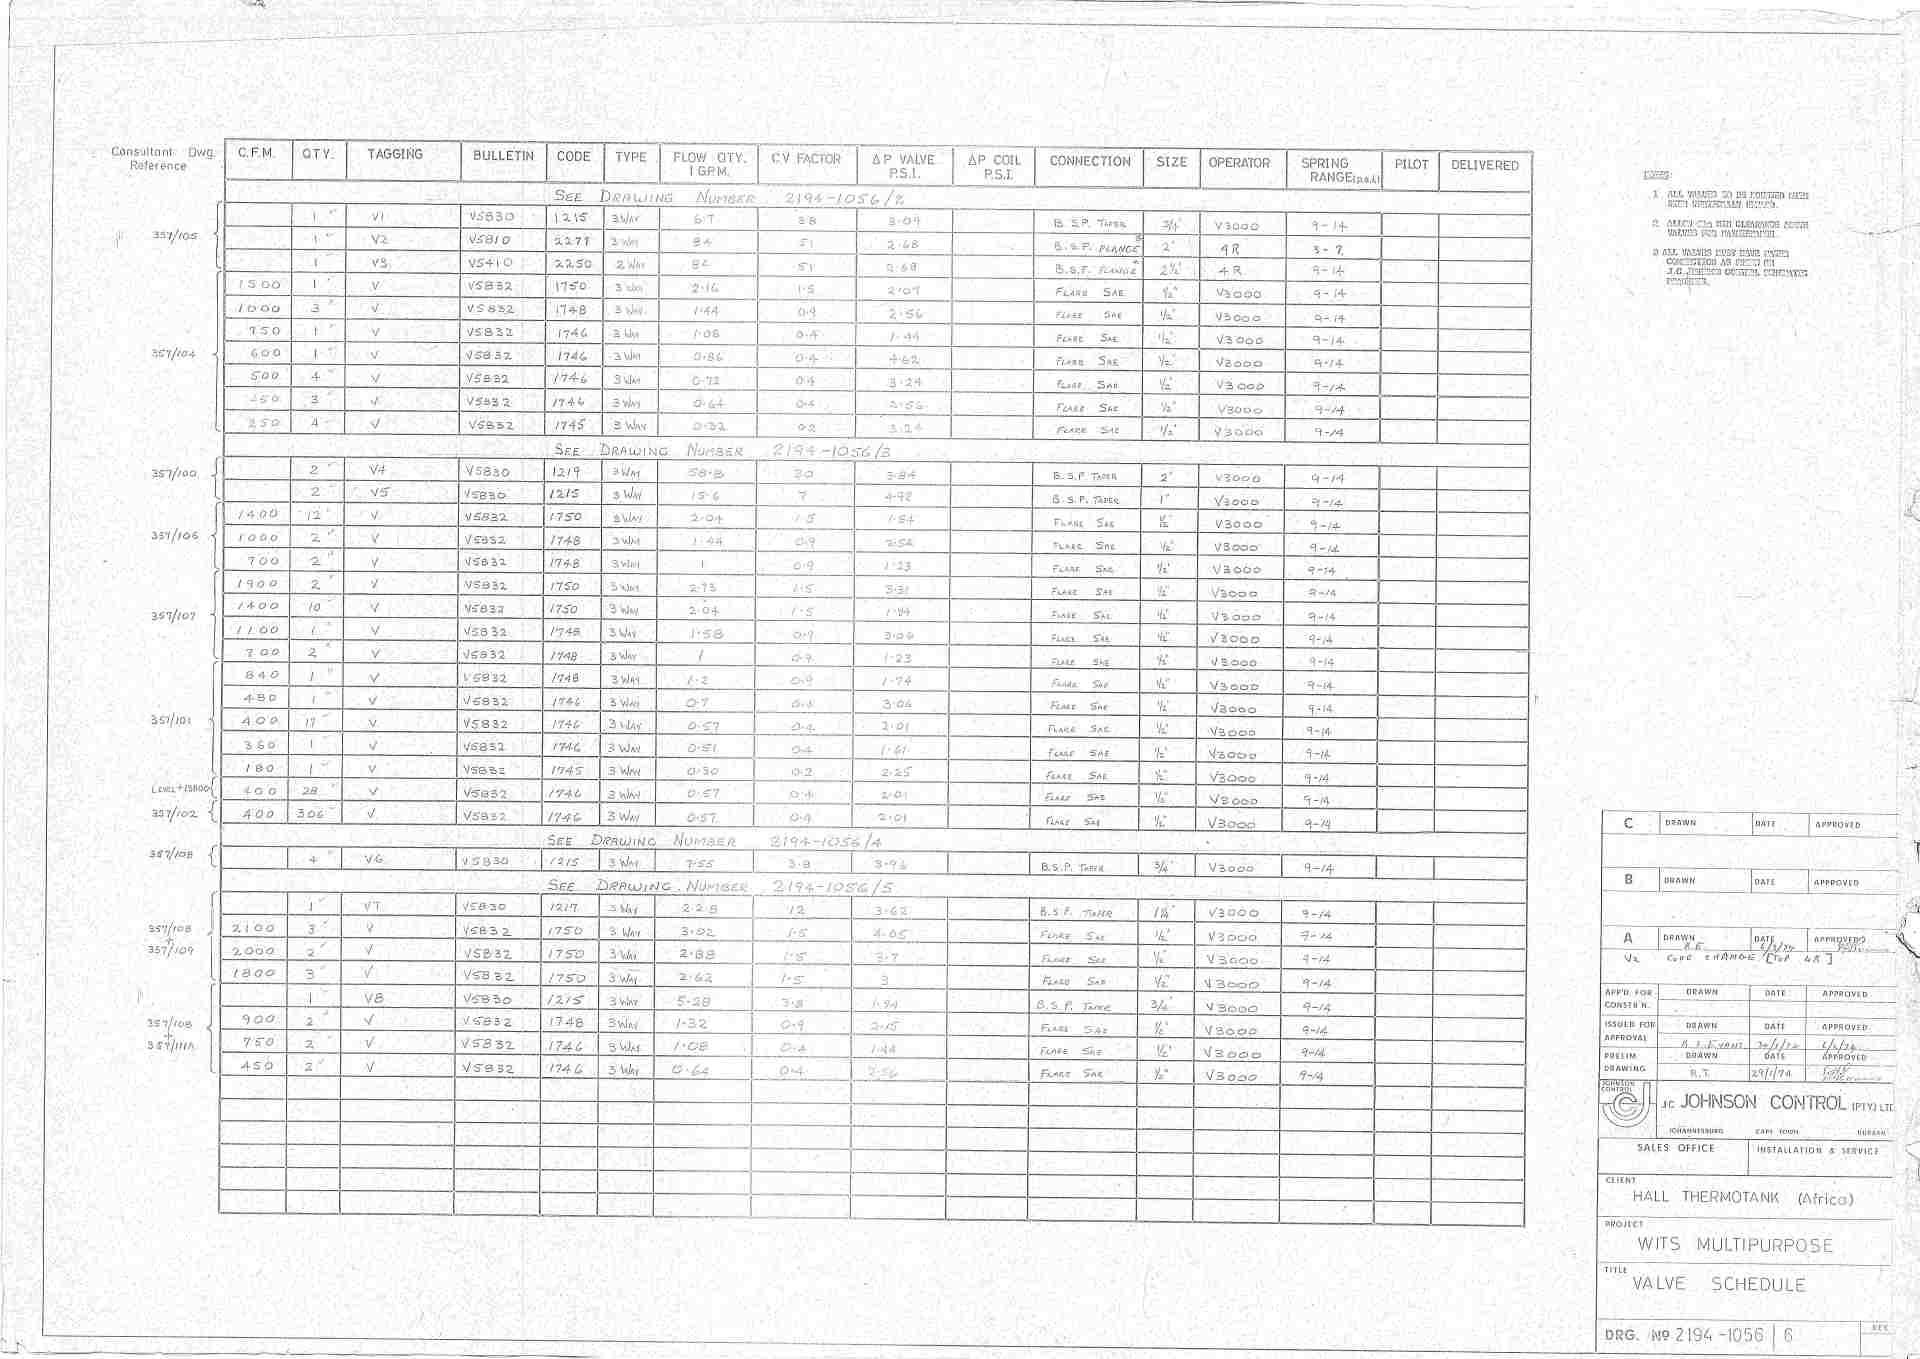 Consultant Dwg. Reference C.F.M. QTY. TAGGING BULLETIN CODE TYPE FLOW QTY. I G.P.M. CV FACTOR ΔP VALVE P.S.I. ΔP COIL P.S.I. CONNECTION SIZE OPERATOR SPRING RANGE(p.s.i.) PILOT DELIVERED
SEE DRAWING NUMBER 2194-1056/2
357/105
1 V1 V5830 1215 3 WAY 6·7 3·8 3·09 B.S.P. TAPER 3/4" V3000 9-14
1 V2 V5810 2277 3 WAY 84 51 2·68 B.S.P. FLANGE 2" 4R 3-7
1 V3 V5410 2250 2 WAY 82 51 2·68 B.S.P. FLANGE 2½" 4R 9-14
357/104
1500 1 V V5832 1750 3 WAY 2·16 1·5 2·07 FLARE SAE ½" V3000 9-14
1000 3 V V5832 1748 3 WAY 1·44 0·9 2·56 FLARE SAE ½" V3000 9-14
750 1 V V5832 1746 3 WAY 1·08 0·4 1·44 FLARE SAE ½" V3000 9-14
600 1 V V5832 1746 3 WAY 0·86 0·4 4·62 FLARE SAE ½" V3000 9-14
500 4 V V5832 1746 3 WAY 0·72 0·4 3·24 FLARE SAE ½" V3000 9-14
450 3 V V5832 1746 3 WAY 0·64 0·4 2·56 FLARE SAE ½" V3000 9-14
250 4 V V5832 1745 3 WAY 0·32 0·2 3·24 FLARE SAE ½" V3000 9-14
SEE DRAWING NUMBER 2194-1056/3
357/100
2 V4 V5830 1219 3 WAY 58·8 30 3·84 B.S.P. TAPER 2" V3000 9-14
2 V5 V5830 1215 3 WAY 15·6 7 4·92 B.S.P. TAPER 1" V3000 9-14
357/106
1400 12 V V5832 1750 3 WAY 2·04 1·5 1·84 FLARE SAE ½" V3000 9-14
1000 2 V V5832 1748 3 WAY 1·44 0·9 2·56 FLARE SAE ½" V3000 9-14
700 2 V V5832 1748 3 WAY 1 0·9 1·23 FLARE SAE ½" V3000 9-14
357/107
1900 2 V V5832 1750 3 WAY 2·73 1·5 3·31 FLARE SAE ½" V3000 9-14
1400 10 V V5832 1750 3 WAY 2·04 1·5 1·84 FLARE SAE ½" V3000 9-14
1100 1 V V5832 1748 3 WAY 1·58 0·9 3·06 FLARE SAE ½" V3000 9-14
700 2 V V5832 1748 3 WAY 1 0·9 1·23 FLARE SAE ½" V3000 9-14
357/101
840 1 V V5832 1748 3 WAY 1·2 0·9 1·74 FLARE SAE ½" V3000 9-14
480 1 V V5832 1746 3 WAY 0·7 0·4 3·06 FLARE SAE ½" V3000 9-14
400 17 V V5832 1746 3 WAY 0·57 0·4 2·01 FLARE SAE ½" V3000 9-14
360 1 V V5832 1746 3 WAY 0·51 0·4 1·61 FLARE SAE ½" V3000 9-14
180 1 V V5832 1745 3 WAY 0·30 0·2 2·25 FLARE SAE ½" V3000 9-14
LEVEL+15800 400 28 V V5832 1746 3 WAY 0·57 0·4 2·01 FLARE SAE ½" V3000 9-14
357/102 400 306 V V5832 1746 3 WAY 0·57 0·4 2·01 FLARE SAE ½" V3000 9-14
SEE DRAWING NUMBER 2194-1056/4
357/108 4 V6 V5830 1215 3 WAY 7·55 3·8 3·96 B.S.P. TAPER 3/4" V3000 9-14
SEE DRAWING NUMBER 2194-1056/5
357/108 + 357/109
1 V7 V5830 1217 3 WAY 22·8 12 3·62 B.S.P. TAPER 1¼" V3000 9-14
2100 3 V V5832 1750 3 WAY 3·02 1·5 4·05 FLARE SAE ½" V3000 9-14
2000 2 V V5832 1750 3 WAY 2·88 1·5 3·7 FLARE SAE ½" V3000 9-14
1800 3 V V5832 1750 3 WAY 2·62 1·5 3 FLARE SAE ½" V3000 9-14
357/108 + 357/111A
1 V8 V5830 1215 3 WAY 5·28 3·8 1·94 B.S.P. TAPER 3/4" V3000 9-14
900 2 V V5832 1748 3 WAY 1·32 0·9 2·15 FLARE SAE ½" V3000 9-14
750 2 V V5832 1746 3 WAY 1·08 0·4 1·44 FLARE SAE ½" V3000 9-14
450 2 V V5832 1746 3 WAY 0·64 0·4 2·56 FLARE SAE ½" V3000 9-14
NOTES:
1 ALL VALVES TO BE
2 MIN CLEARANCE ABOVE
VALVES FOR MAINTENANCE.
3 ALL VALVES MUST HAVE
CONNECTION AS
J.C. JOHNSON CONTROL
C DRAWN DATE APPROVED
B DRAWN DATE APPROVED
A DRAWN R.E. DATE 6/3/74 APPROVED
V2 CODE CHANGE [TOP 4R]
APP'D. FOR CONSTR'N. DRAWN DATE APPROVED
ISSUED FOR APPROVAL DRAWN DATE APPROVED
PRELIM. DRAWING DRAWN R.T. DATE 29/1/74 APPROVED
JOHNSON CONTROL
JC JOHNSON CONTROL (PTY) LTD
JOHANNESBURG CAPE TOWN DURBAN
SALES OFFICE INSTALLATION & SERVICE
CLIENT
HALL THERMOTANK (Africa)
PROJECT
WITS MULTIPURPOSE
TITLE
VALVE SCHEDULE
DRG. Nº 2194-1056 | 6 REV.